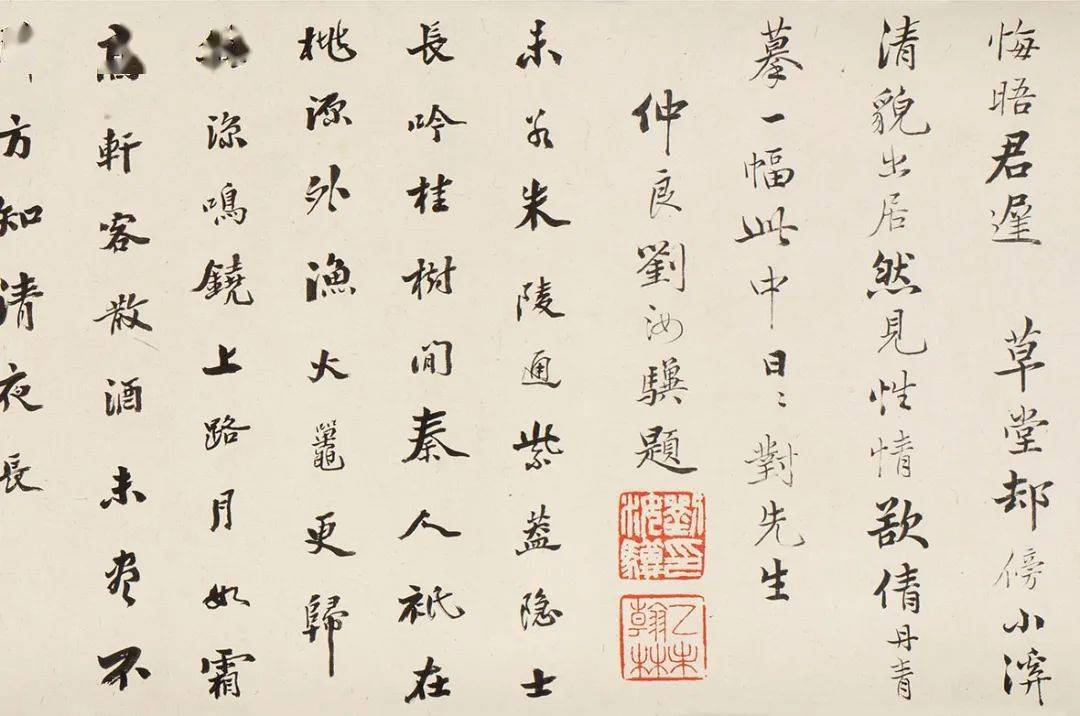 悔晤君遲　草堂却傍小溪
清貌出居然見性情欲倩丹青
摹一幅此中日〻對先生
仲良劉汝驥題
劉汝驥印
乙未翰林
未若朱陵通紫蓋隐士
長吟桂樹間秦人祇在
桃源外漁火䵷更歸
涼鳴鐃上路月如霜
高軒客散酒未盡不
方知清夜長